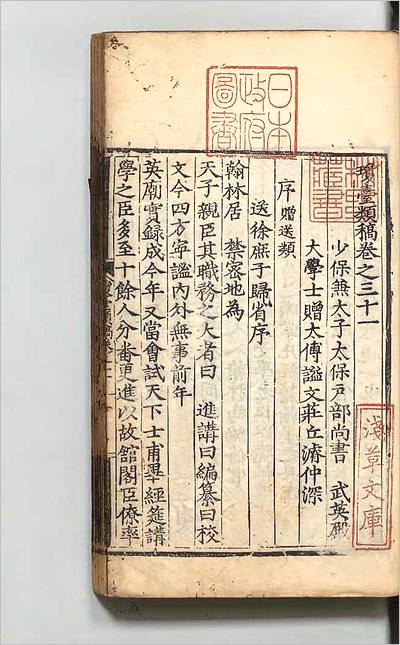 日本政府圖書
瓊臺類稿卷之三十一
少保兼太子太保戶部尚書 武英殿
大學士贈太傅謚文莊丘濬仲深
淺草文庫
序 贈送類
送徐庶子歸省序
翰林居 禁密地為
天子親臣其職務之大者曰 進講曰編纂曰校
文今四方寧謐內外無事前年
英廟實錄成今年又當會試天下士甫畢經筵講
學之臣多至十餘人分番更進以故館閣臣僚率